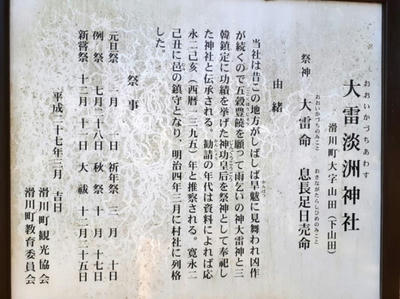 おおいかづちあわす
大雷淡洲神社
滑川町大字山田(下山田)
おおいかづちのみこと
おきながたらしひめのみこと
祭神 大雷命 息長足日売命
由緒
当社は昔この地方がしばしば旱魃に見舞われ凶作
が続くので五穀豊饒を願って雨乞いの神大雷神と三
韓鎮定に功績を挙げた神功皇后を祭神として奉祀し
た神社と伝承される。勧請の年代は資料によれば応
永二己亥(西暦一三九五)年と推察される。寛永二
己丑に邑の鎮守となり、明治四年三月に村社に列格
した。
祭事
元旦祭 一月 一日 祈年祭 三月 十日
例祭 七月二十八日 秋祭 十月 十七日
新嘗祭 十二月 十日 大祓 十二月二十五日
平成二十七年三月 吉日
滑川町観光協会
滑川町教育委員会